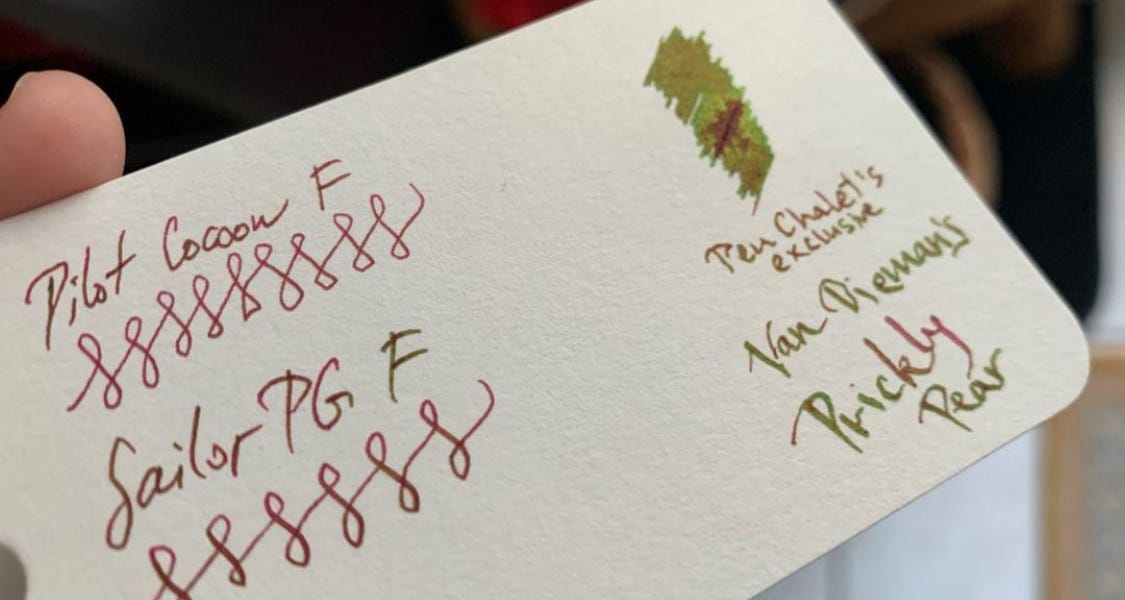 Pilot Cocoon F
Sailor PG F
Pen Chalet's
exclusive
Van Dieman's
Prickly
Pear